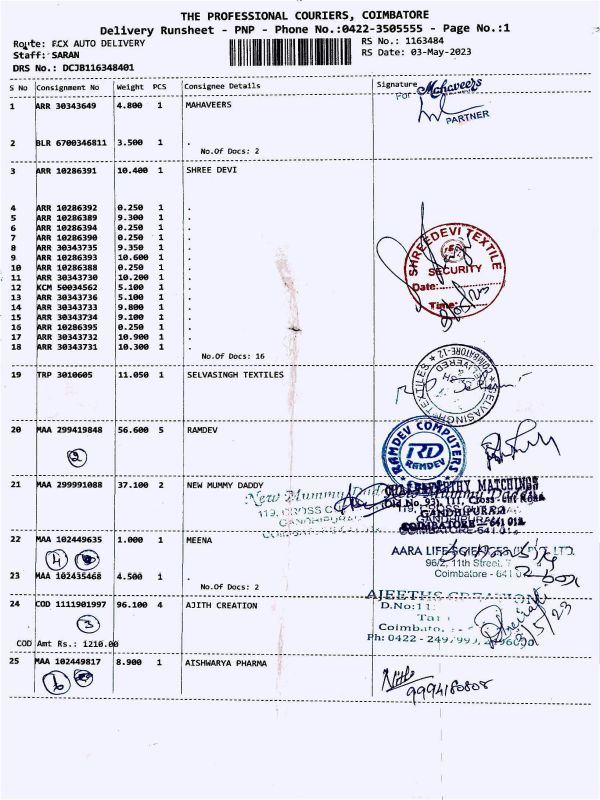 THE PROFESSIONAL COURIERS, COIMBATORE
Delivery Runsheet - PNP - Phone No.:0422-3505555 - Page No.:1
Route: ECX AUTO DELIVERY
RS No.: 1163484
Staff: SARAN
RS Date: 03-May-2023
DRS No.: DCJB116348401
S No Consignment No Weight PCS Consignee Details Signature
1 ARR 30343649 4.800 1 MAHAVEERS
For Mahaveers
PARTNER
2 BLR 6700346811 3.500 1 .
No.Of Docs: 2
3 ARR 10286391 10.400 1 SHREE DEVI
4 ARR 10286392 0.250 1 .
5 ARR 10286389 9.300 1 .
6 ARR 10286394 0.250 1 .
7 ARR 10286390 0.250 1 .
8 ARR 30343735 9.350 1 .
9 ARR 10286393 10.600 1 .
10 ARR 10286388 0.250 1 .
11 ARR 30343730 10.200 1 .
12 KCM 50034562 5.100 1 .
13 ARR 30343736 5.100 1 .
14 ARR 30343733 9.800 1 .
15 ARR 30343734 9.100 1 .
16 ARR 10286395 0.250 1 .
17 ARR 30343732 10.900 1 .
18 ARR 30343731 10.300 1 .
No.Of Docs: 16
SHREEDEVI TEXTILE
SECURITY
Date:
Time:
19 TRP 3010605 11.050 1 SELVASINGH TEXTILES
SELVASINGH TEXTILES
COIMBATORE-12
20 MAA 299419848 56.600 5 RAMDEV
2
RAMDEV COMPUTERS
RD
RAMDEV
21 MAA 299991088 37.100 2 NEW MUMMY DADDY
New Mummy Dad
119, CROSS C
GANDHIPURA
MATCHINGS
Old No. 93, 111, Cross
GANDHIPURAM
COIMBATORE - 641 012
22 MAA 102449635 1.000 1 MEENA
4
AARA LIFE
96/2, 11th Street,
Coimbatore - 641 0
23 MAA 102435468 4.500 1 .
No.Of Docs: 2
24 COD 1111901997 96.100 4 AJITH CREATION
3
AJEETHS CREATION
D.No:11
Coimbat
Ph: 0422 -
3/5/23
COD Amt Rs.: 1210.00
25 MAA 102449817 8.900 1 AISHWARYA PHARMA
6
9994180808